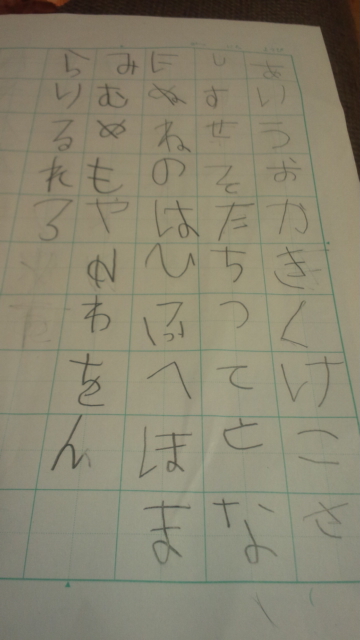 あいうおかきくけこさ
しすせそたちつてとな
にぬねのはひふへほま
みむめもやゆわをん
らりるれろ